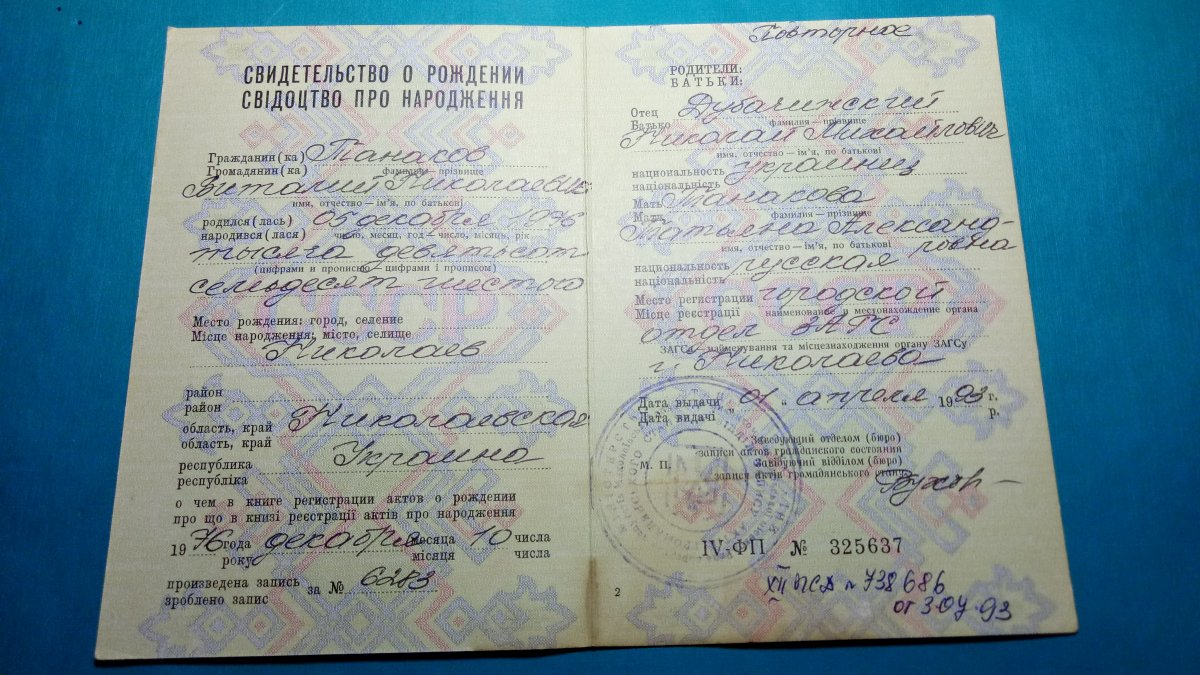 СВИДЕТЕЛЬСТВО О РОЖДЕНИИ
СВІДОЦТВО ПРО НАРОДЖЕННЯ
Гражданин(ка) Танаков
Громадянин(ка) фамилия — прізвище
Виталий Николаевич
имя, отчество — ім'я, по батькові
родился (лась) 05 декабря 1976
народився (лася) число, месяц, год — число, місяць, рік
тысяча девятьсот
(цифрами и прописью — цифрами і прописом)
семьдесят шестого
Место рождения: город, селение
Місце народження: місто, селище
Николаев
район
район
область, край Николаевская
область, край
республика Украина
республіка
о чем в книге регистрации актов о рождении
про що в книзі реєстрації актів про народження
1976 года декабря месяца 10 числа
року місяця числа
произведена запись за № 6283
зроблено запис
Повторное
РОДИТЕЛИ:
БАТЬКИ:
Отец Дубачижский
Батько фамилия — прізвище
Николай Михайлович
имя, отчество — ім'я, по батькові
национальность украинец
національність
Мать Танакова
Мати фамилия — прізвище
Татьяна Александ-
имя, отчество — ім'я, по батькові ровна
национальность русская
національність
Место регистрации городской
Місце реєстрації наименование и местонахождение органа
отдел ЗАГС
ЗАГСа — найменування та місцезнаходження органу ЗАГСу
г. Николаева
Дата выдачи „ 01 " апреля 1993 г.
Дата видачі р.
Заведующий отделом (бюро)
записи актов гражданского состояния
М. П. Завідуючий відділом (бюро)
запису актів громадянського стану
IV-ФП № 325637
2
XII ПСД № 738686
от 3.04.93